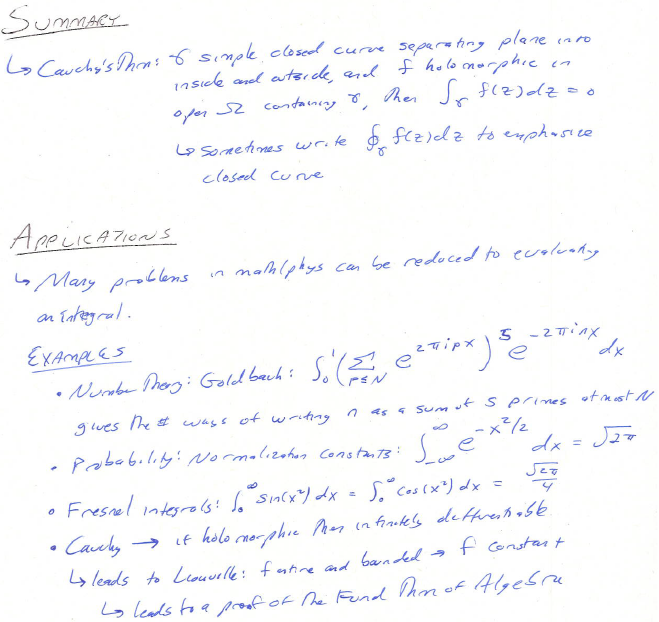 SUMMARY
↳ Cauchy's Thm: γ simple closed curve separating plane into
inside and outside, and f holomorphic in
open Ω containing γ, then ∫_γ f(z)dz = 0
↳ Sometimes write ∮_γ f(z)dz to emphasize
closed curve
APPLICATIONS
↳ Many problems in math/phys can be reduced to evaluating
an integral.
EXAMPLES
• Number Theory: Goldbach: ∫_0^1 (∑_{p≤N} e^{2πipx})^s e^{-2πinx} dx
gives the # ways of writing n as a sum of s primes at most N
• Probability: Normalization constants: ∫_{-∞}^{∞} e^{-x²/2} dx = √2π
• Fresnel integrals: ∫_0^∞ sin(x²) dx = ∫_0^∞ cos(x²) dx = √2π/4
• Cauchy → if holomorphic then infinitely differentiable
↳ leads to Liouville: f entire and bounded → f constant
↳ leads to a proof of the Fund Thm of Algebra